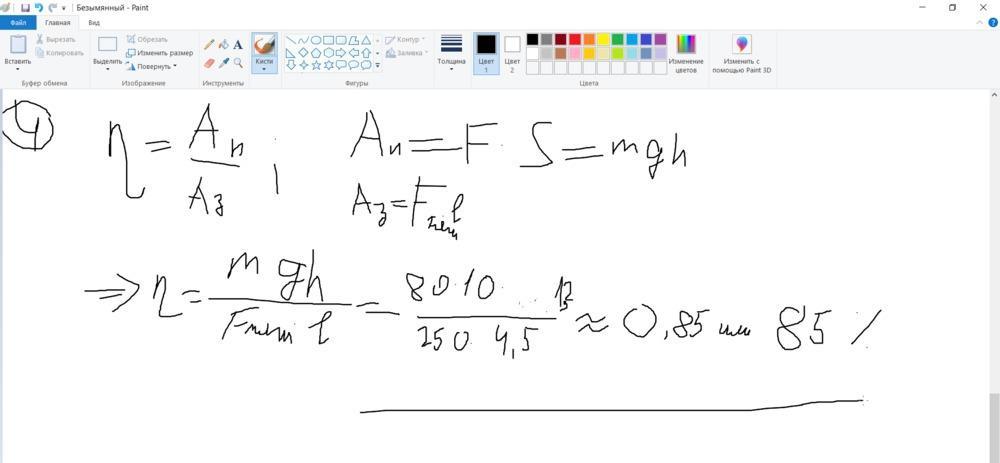 Безымянный - Paint
Файл Главная Вид
Вставить
Вырезать
Копировать
Буфер обмена
Выделить
Обрезать
Изменить размер
Повернуть
Изображение
Инструменты
Кисти
Контур
Заливка
Фигуры
Толщина
Цвет 1
Цвет 2
Цвета
Изменение цветов
Изменить с помощью Paint 3D
4 η = Aп / Aз ; Aп = F S = mgh
Aз = F l
⇒ η = mgh / F l = 80·10 / 250·4,5 ≈ 0,85 или 85 %